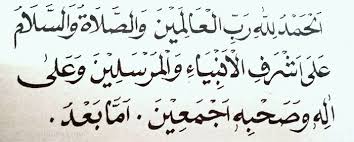 اَلْحَمْدُ لِلّٰهِ رَبِّ الْعَالَمِيْنَ وَالصَّلَاةُ وَالسَّلَامُ
عَلَى اَشْرَفِ الْاَنْبِيَاءِ وَالْمُرْسَلِيْنَ وَعَلَى
اٰلِهِ وَصَحْبِهِ اَجْمَعِيْنَ . اَمَّا بَعْدُ .